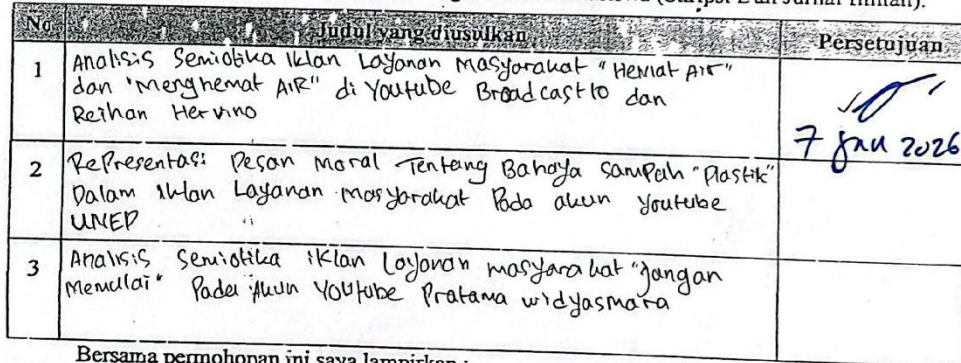 (Skripsi Dan Jurnal Ilmiah).
No Judul yang diusulkan Persetujuan
1 Analisis Semiotika Iklan Layanan Masyarakat "Hemat Air"
dan "Menghemat AIR" di Youtube Broadcast10 dan
Reihan Hervino
7 Jan 2026
2 Representasi Pesan Moral Tentang Bahaya Sampah "Plastik"
Dalam Iklan Layanan Masyarakat Pada akun Youtube
UNEP
3 Analisis Semiotika iklan Layanan masyarakat "Jangan
Memulai" Pada Akun Youtube Pratama widyasmara
Bersama permohonan ini saya lampirkan :